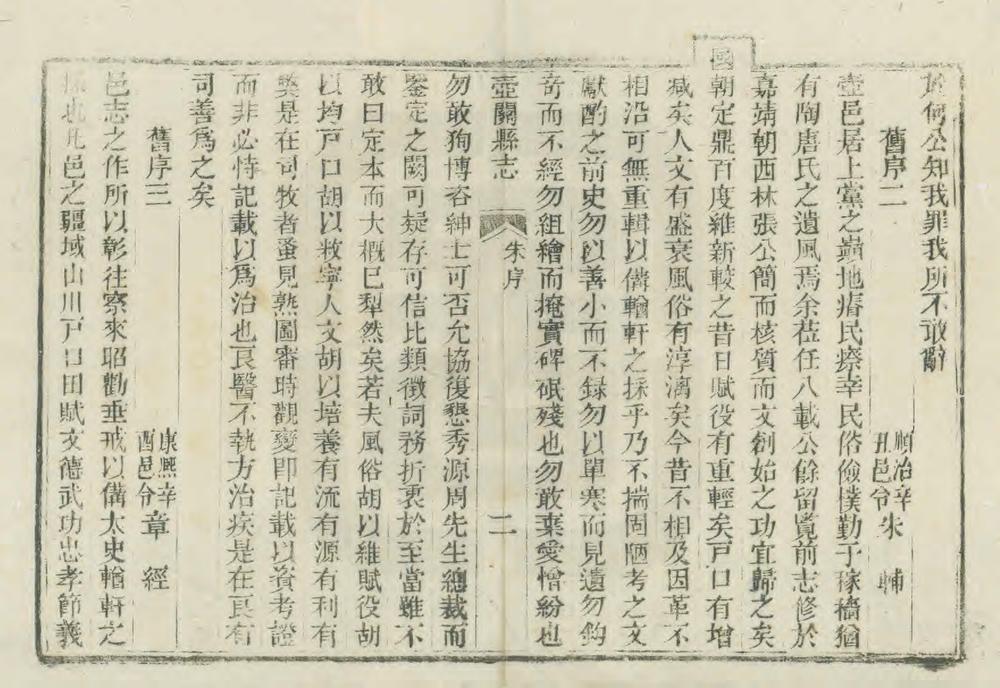 於何公知我罪我所不敢辭
舊序二 順治辛丑邑令朱輔
壺邑居上黨之巔地瘠民瘵幸民俗儉樸勤于稼穡猶
有陶唐氏之遺風焉余莅任八載公餘留覽前志修於
嘉靖朝西林張公簡而核質而文創始之功宜歸之矣
國朝定鼎百度維新較之昔日賦役有重輕矣戸口有增
減矣人文有盛衰風俗有淳漓矣今昔不相及因革不
相沿可無重輯以備輶軒之採乎乃不揣固陋考之文
獻酌之前史勿以善小而不録勿以單寒而見遺勿鈎
奇而不經勿組繪而掩實碑碣殘也勿敢棄愛憎紛也
壺關縣志 朱序 二
勿敢狥博咨紳士可否允協復懇秀源周先生總裁而
鑒定之闕可疑存可信比類徵詞務折衷於至當雖不
敢曰定本而大概已犁然矣若夫風俗胡以維賦役胡
以均戸口胡以救寧人文胡以培養有流有源有利有
獘是在司牧者蚤見熟圖審時觀變即記載以資考證
而非必恃記載以爲治也良醫不執方治疾是在良有
司善爲之矣
舊序三 康熙辛酉邑令章經
邑志之作所以彰往察來昭勸垂戒以備太史輶軒之
採也凡邑之疆域山川戸口田賦文德武功忠孝節義